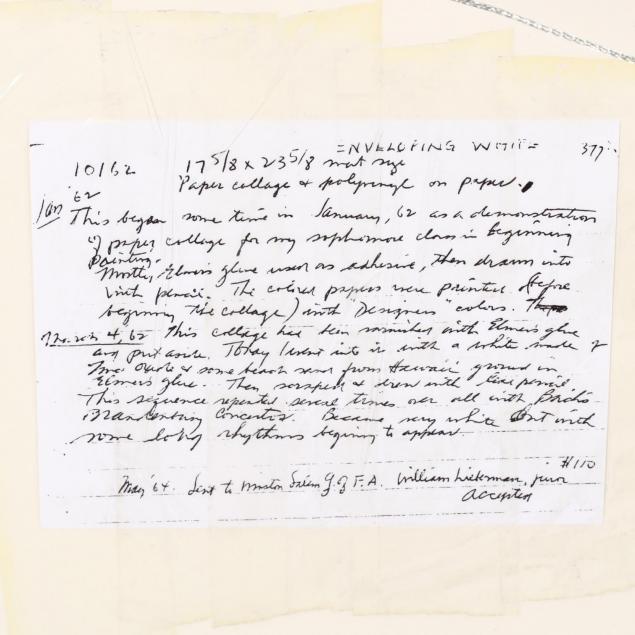 ENVELOPING WHITE 377
10/62 17 5/8 x 23 5/8 mat size
Paper collage & polymer on paper.
Jan '62
This began some time in January, 62 as a demonstration
of paper collage for my sophomore class in beginning
painting.
Mostly Elmers glue used as adhesive, then drawn into
with pencil. The colored papers were printed (before
beginning the collage) with "Designers" colors.
4, 62 This collage has been varnished with Elmers glue
and put aside. Today I went into it with a white made of
& some beach sand from Hawaii ground in
Elmers glue. Then scraped & drew with pencil.
This sequence repeated several times over all with Bach's
Brandenburg Concertos. Became very white but with
some lovely rhythms beginning to appear
#110
May '64. Sent to Winston Salem G. of F.A. William Lieberman, juror
Accepted